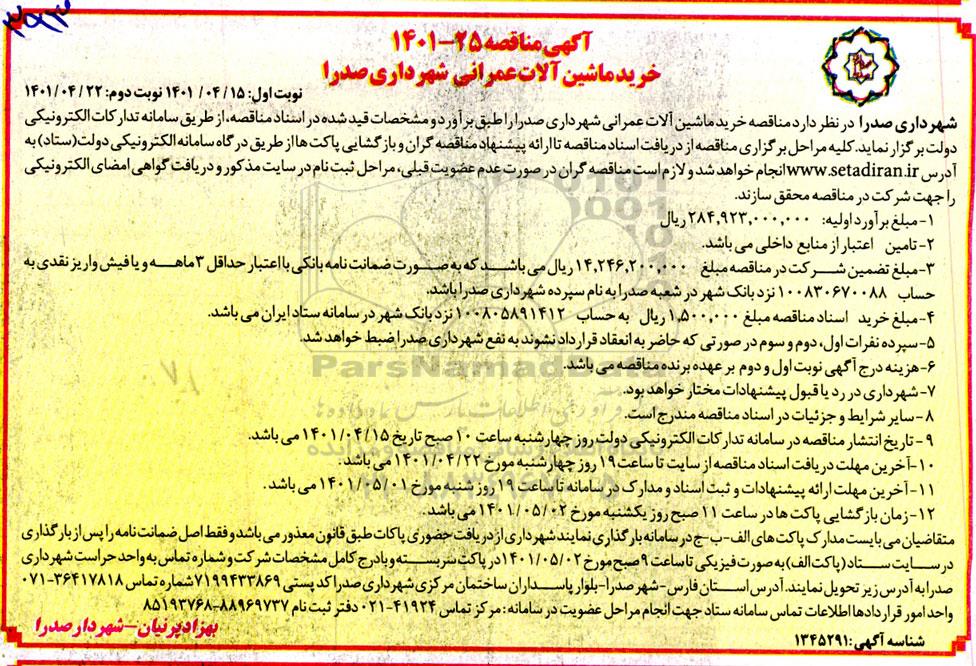 آگهی مناقصه ۲۵-۱۴۰۱
خرید ماشین آلات عمرانی شهرداری صدرا
نوبت اول: ۱۵ /۰۴ /۱۴۰۱ نوبت دوم: ۲۲ /۰۴ /۱۴۰۱
شهرداری صدرا در نظر دارد مناقصه خرید ماشین آلات عمرانی شهرداری صدرا را طبق برآورد و مشخصات قید شده در اسناد مناقصه، از طریق سامانه تدارکات الکترونیکی
دولت برگزار نماید. کلیه مراحل برگزاری مناقصه از دریافت اسناد مناقصه تا ارائه پیشنهاد مناقصه گران و بازگشایی پاکت ها از طریق درگاه سامانه الکترونیکی دولت (ستاد) به
آدرس www.setadiran.ir انجام خواهد شد و لازم است مناقصه گران در صورت عدم عضویت قبلی، مراحل ثبت نام در سایت مذکور و دریافت گواهی امضای الکترونیکی
را جهت شرکت در مناقصه محقق سازند.
۱-مبلغ برآورد اولیه: ۲۸۴,۹۲۳,۰۰۰,۰۰۰ ریال
۲-تامین اعتبار از منابع داخلی می باشد.
۳-مبلغ تضمین شرکت در مناقصه مبلغ ۱۴,۲۴۶,۲۰۰,۰۰۰ ریال می باشد که به صورت ضمانت نامه بانکی با اعتبار حداقل ۳ ماهه و یا فیش واریز نقدی به
حساب ۱۰۰۸۳۰۶۷۰۰۸۸ نزد بانک شهر در شعبه صدرا به نام سپرده شهرداری صدرا باشد.
۴-مبلغ خرید اسناد مناقصه مبلغ ۱,۵۰۰,۰۰۰ ریال به حساب ۱۰۰۸۰۵۸۹۱۴۱۲ نزد بانک شهر در سامانه ستاد ایران می باشد.
۵-سپرده نفرات اول، دوم و سوم در صورتی که حاضر به انعقاد قرارداد نشوند به نفع شهرداری صدرا ضبط خواهد شد.
۶-هزینه درج آگهی نوبت اول و دوم بر عهده برنده مناقصه می باشد.
ParsNamadData
۷-شهرداری در رد یا قبول پیشنهادات مختار خواهد بود.
۸-سایر شرایط و جزئیات در اسناد مناقصه مندرج است.
۹-تاریخ انتشار مناقصه در سامانه تدارکات الکترونیکی دولت روز چهارشنبه ساعت ۱۰ صبح تاریخ ۱۴۰۱/۰۴/۱۵ می باشد.
۱۰-آخرین مهلت دریافت اسناد مناقصه از سایت تا ساعت ۱۹ روز چهارشنبه مورخ ۱۴۰۱/۰۴/۲۲ می باشد.
۱۱-آخرین مهلت ارائه پیشنهادات و ثبت اسناد و مدارک در سامانه تا ساعت ۱۹ روز شنبه مورخ ۱۴۰۱/۰۵/۰۱ می باشد.
۱۲-زمان بازگشایی پاکت ها در ساعت ۱۱ صبح روز یکشنبه مورخ ۱۴۰۱/۰۵/۰۲ می باشد.
متقاضیان می بایست مدارک پاکت های الف-ب-ج در سامانه بارگذاری نمایند شهرداری از دریافت حضوری پاکات طبق قانون معذور می باشد و فقط اصل ضمانت نامه را پس از بارگذاری
در سایت ستاد (پاکت الف) به صورت فیزیکی تا ساعت ۹ صبح مورخ ۱۴۰۱/۰۵/۰۲ در پاکت سربسته و با درج کامل مشخصات شرکت و شماره تماس به واحد حراست شهرداری
صدرا به آدرس زیر تحویل نمایند. آدرس استان فارس-شهر صدرا-بلوار پاسداران ساختمان مرکزی شهرداری صدرا کد پستی ۷۱۹۹۴۳۳۸۶۹ شماره تماس ۳۶۴۱۷۸۱۸-۰۷۱
واحد امور قراردادها اطلاعات تماس سامانه ستاد جهت انجام مراحل عضویت در سامانه: مرکز تماس ۴۱۹۳۴-۰۲۱ دفتر ثبت نام ۸۸۹۶۹۷۳۷-۸۵۱۹۳۷۶۸
بهزاد پرنیان-شهردار صدرا
شناسه آگهی: ۱۳۴۵۲۹۱